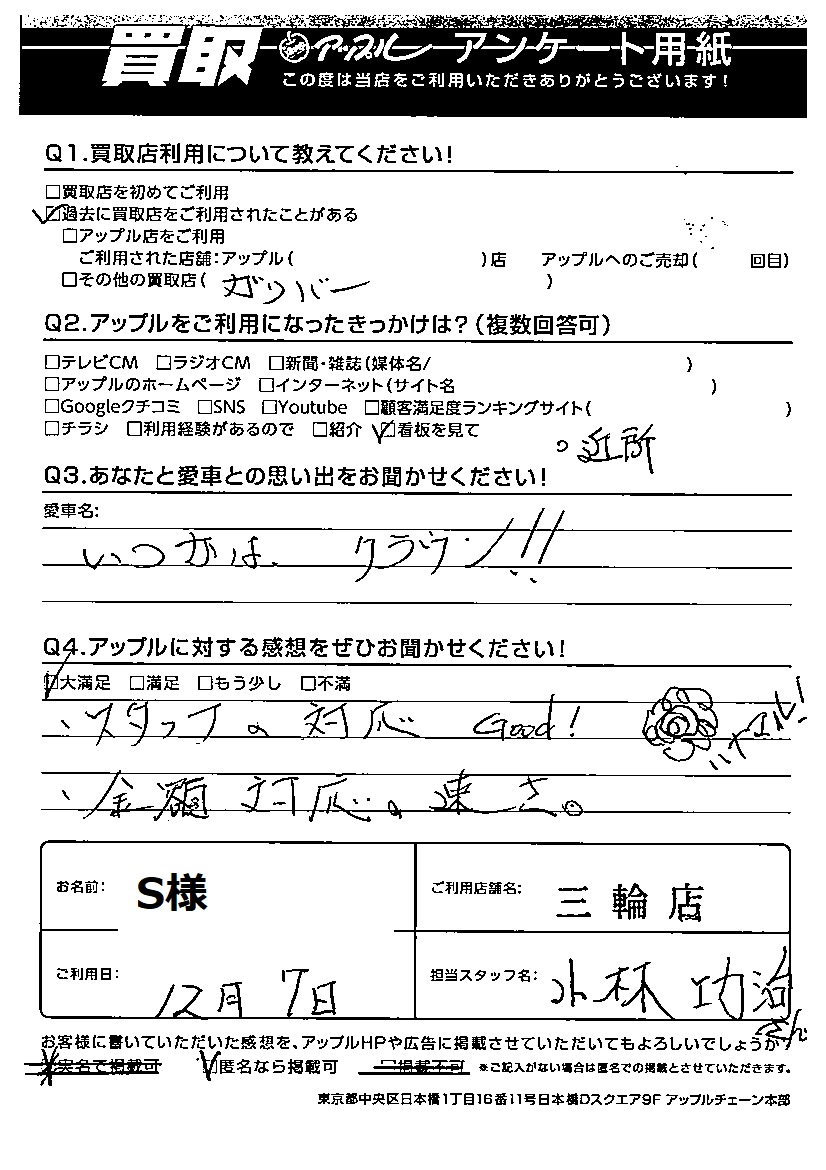 買取 アップル アンケート用紙
この度は当店をご利用いただきありがとうございます!
Q1.買取店利用について教えてください!
□買取店を初めてご利用
☑過去に買取店をご利用されたことがある
□アップル店をご利用
ご利用された店舗:アップル( )店 アップルへのご売却( 回目)
□その他の買取店( ガリバー )
Q2.アップルをご利用になったきっかけは?(複数回答可)
□テレビCM □ラジオCM □新聞・雑誌(媒体名/ )
□アップルのホームページ □インターネット(サイト名 )
□Googleクチコミ □SNS □Youtube □顧客満足度ランキングサイト( )
□チラシ □利用経験があるので □紹介 ☑看板を見て
。近所
Q3.あなたと愛車との思い出をお聞かせください!
愛車名:
いつかは、 クラウン!!!
Q4.アップルに対する感想をぜひお聞かせください!
☑大満足 □満足 □もう少し □不満
、スタッフの対応 Good!
、金額対応の速さ。
お名前: S様 ご利用店舗名: 三輪店
ご利用日: 12月7日 担当スタッフ名: 小林 功治さん
お客様に書いていただいた感想を、アップルHPや広告に掲載させていただいてもよろしいでしょうか?
実名で掲載可 ☑匿名なら掲載可 □掲載不可 ※ご記入がない場合は匿名での掲載とさせていただきます。
東京都中央区日本橋1丁目16番11号日本橋Dスクエア9F アップルチェーン本部